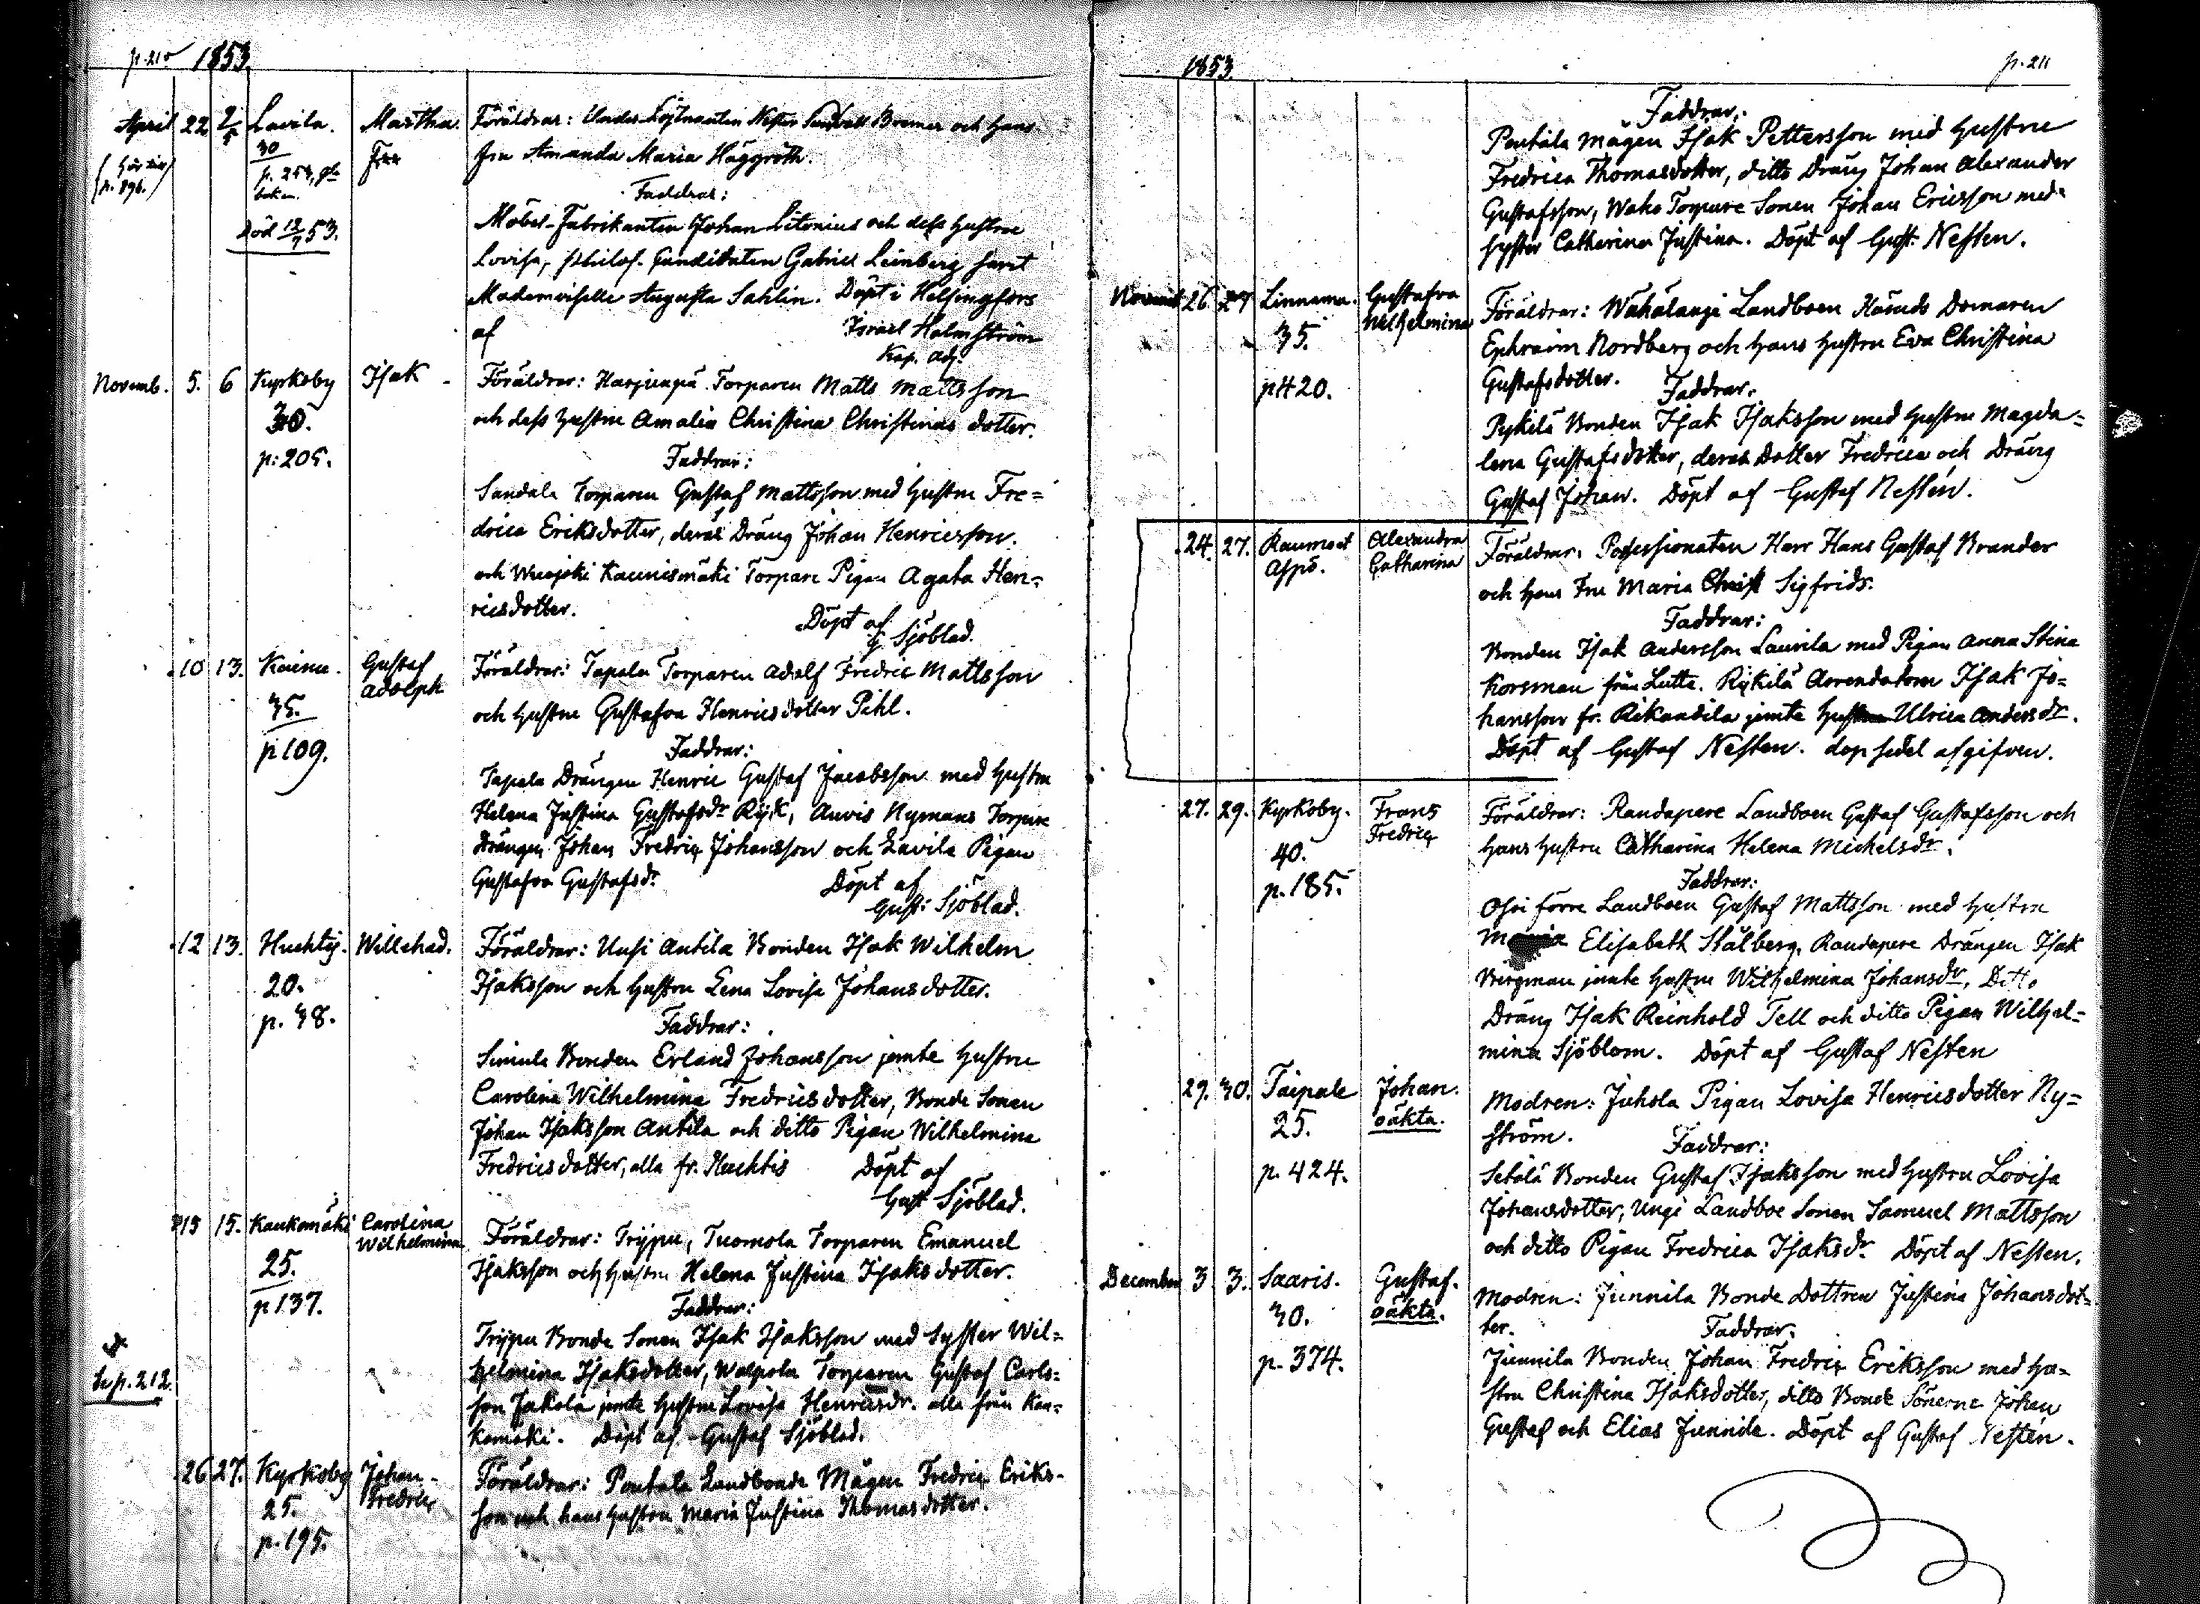 p. 210 1853.
April 22 2/5 Lavila. Martha. Föräldrar: Under Löjtnanten Bremer och hans
30 fru Amanda Maria Häggroth.
p. 254,
Faddrar:
Död 12/7 53. Möbel-Fabrikanten Johan Litonius och dess hustru
Lovisa, philos. Candidaten Gabriel Leinberg samt
Mademoiselle Augusta Sahlin. Döpt i Helsingfors
af Israel Holmström
Kap. adj.
Novemb. 5. 6 Kyrkoby Isak Föräldrar: Harjunpä Torparen Matts Mattsson
30. och dess hustru Amalia Christina Christinas dotter.
p: 205. Faddrar:
Sandala Torparen Gustaf Mattsson med hustru Fre=
drica Eriksdotter, deras Dräng Johan Henricsson.
och Kaunismäki Torpare Pigan Agata Hen=
ricsdotter. Döpt af
G. Sjöblad.
10 13. Kainu. Gustaf Adolph Föräldrar: Tapala Torparen Adolf Fredric Mattsson
35. och hustru Gustafva Henricsdotter Pihl.
p 109. Faddrar:
Tapala Drängen Henric Gustaf Jacobsson med hustru
Helena Justina Gustafsdr Rÿk, Anvis Nymans Torpare
Drängen Johan Fredric Johansson och Lavila Pigan
Gustafva Gustafsdr Döpt af
Gust: Sjöblad.
12 13. Huchtis. Willehad. Föräldrar: Uusi Antila Bonden Isak Wilhelm
20. Isaksson och hustru Lena Lovisa Johansdotter.
p. 48. Faddrar:
Simula Bonden Erland Johansson jemte hustru
Carolina Wilhelmina Fredricsdotter, Bonde Sonen
Johan Isaksson Antila och ditto Pigan Wilhelmina
Fredricsdotter, alla fr. Huchtis Döpt af
Gust Sjöblad.
13 15. Kaukomäki Carolina Wilhelmina Föräldrar: Trÿpu, Tuomola Torparen Emanuel
25. Isaksson och hustru Helena Justina Isaksdotter.
p 137. Faddrar:
Trÿpu Bonde Sonen Isak Isaksson med syster Wil=
helmina Isaksdotter, Walpola Torparen Gustaf Carls=
Se p. 212. son Jakola jemte hustru Lovisa Henricsdr. alla från Kau=
komäki. Döpt af Gustaf Sjöblad.
26 27. Kyrkoby Johan Fredric Föräldrar: Pentala Landbonde Mågen Fredric Eriks-
25. son och hans hustru Maria Justina Thomasdotter.
p. 195.
1853. p. 211
Faddrar:
Pentala Mågen Isak Pettersson med hustru
Fredrica Thomasdotter, ditto Dräng Johan Alexander
Gustafsson, Waho Torpare Sonen Johan Ericsson med
syster Catharina Justina. Döpt af Gust. Nestén.
Novemb 26. 27 Linnama. Gustafva Wilhelmina Föräldrar: Wähälangi Landboen Härads Domaren
35. Ephraim Nordberg och hans hustru Eva Christina
p 420. Gustafsdotter. Faddrar:
Pykilä Bonden Isak Isaksson med hustru Magda=
lena Gustafsdotter, deras Dotter Fredrica och Dräng
Gustaf Johan. Döpt af Gustaf Nestén.
24. 27. Raumo et Aspö. Alexandra Catharina Föräldrar: Possessionaten Herr Hans Gustaf Brander
och hans Fru Maria Christ Sigfrids.
Faddrar:
Bonden Isak Andersson Laurila med Pigan Anna Stina
Korsman från Lutta. Rykilä Arrendatorn Isak Jo=
hansson fr. Rikandila jemte hustru Ulrica Andersdr.
Döpt af Gustaf Nesten. dopsedel afgifven.
27. 29. Kyrkoby. Frans Fredric Föräldrar: Randapere Landboen Gustaf Gustafsson och
40. hans hustru Catharina Helena Michelsdr.
p. 185. Faddrar:
Ohri förre Landboen Gustaf Mattsson med hustru
Maria Elisabeth Stålberg, Randapere Drängen Isak
Bergman jemte hustru Wilhelmina Johansdr, Ditto
Dräng Isak Reinhold Tell och ditto Pigan Wilhel=
mina Sjöblom. Döpt af Gustaf Nesten
29. 30. Taipale Johan. oäkta. Modren: Juhola Pigan Lovisa Henricsdotter Ny=
25. ström. Faddrar:
p. 424. Setälä Bonden Gustaf Isaksson med hustru Lovisa
Johansdotter, Ungi Landboe Sonen Samuel Mattsson
och ditto Pigan Fredrica Isaksdr. Döpt af Nesten.
December 3 3. Saaris. Gustaf. oäkta. Modren: Junnila Bonde Dottren Justina Johansdot=
30. ter. Faddrar.
p. 374. Junnila Bonden Johan Fredric Eriksson med hu=
stru Christina Isaksdotter, ditto Bonde Sönerne Johan
Gustaf och Elias Junnila. Döpt af Gustaf Nestén.